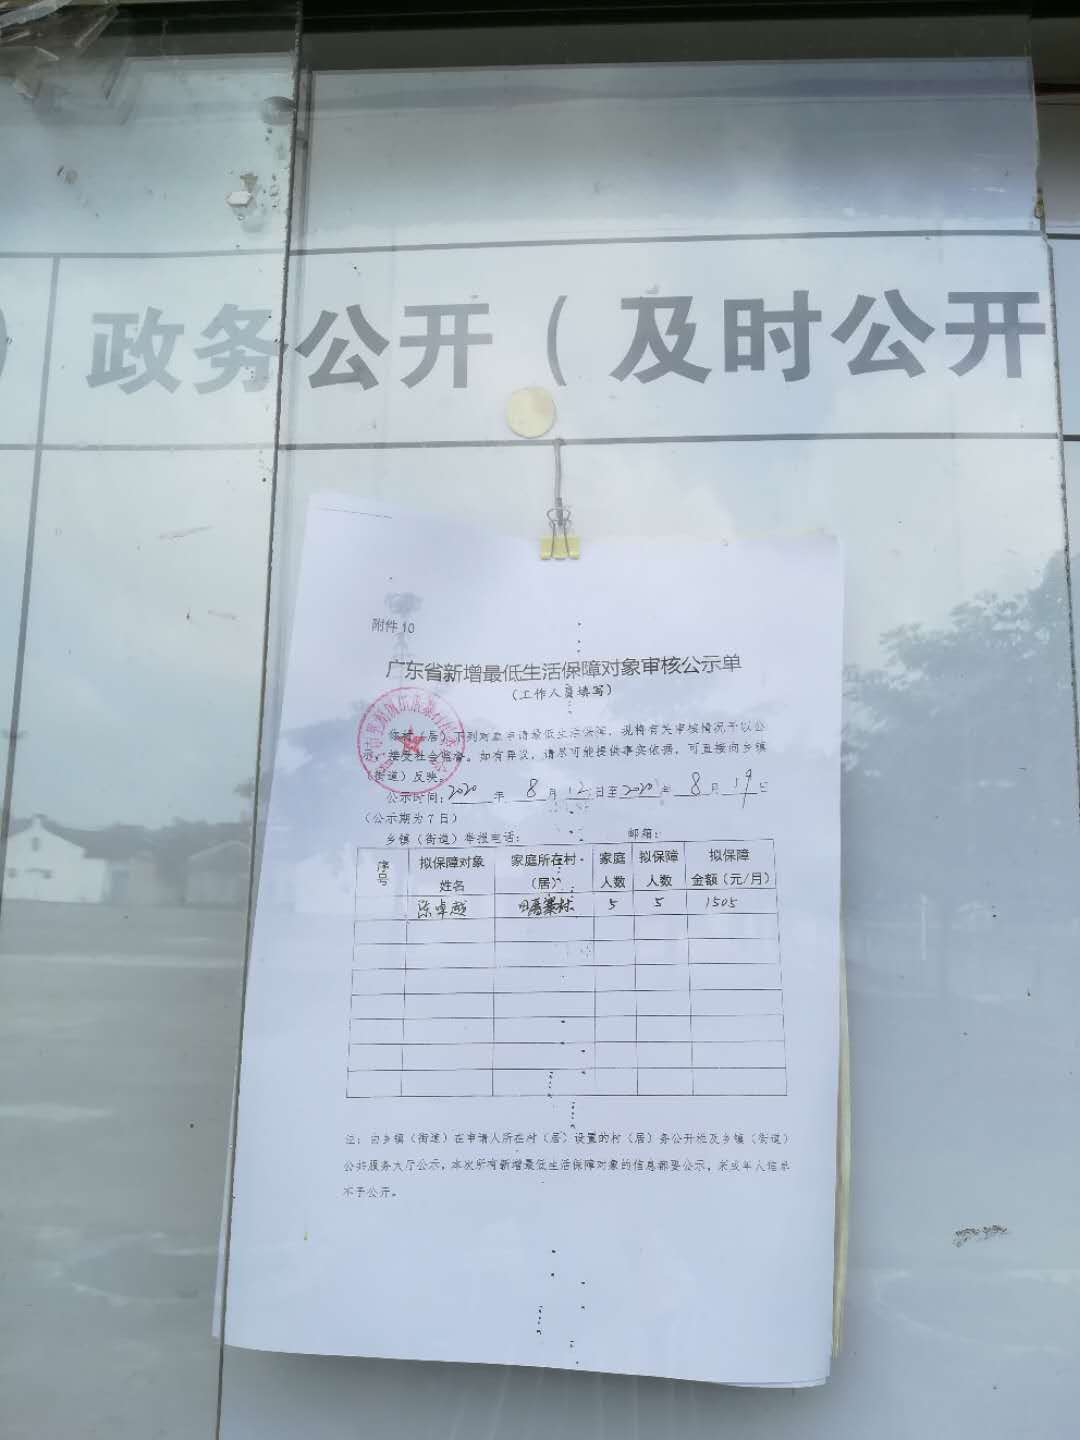 ）政务公开（及时公开
附件 10
广东省新增最低生活保障对象审核公示单
（工作人员填写）
你村（居）下列对象申请最低生活保障，现将有关审核情况予以公
示，接受社会监督。如有异议，请尽可能提供事实依据，可直接向乡镇
（街道）反映。
公示时间：2020 年 8 月 12 日至 2020 年 8 月 19 日
（公示期为 7 日）
乡镇（街道）举报电话： 邮箱：
序号 拟保障对象姓名 家庭所在村（居） 家庭人数 拟保障人数 拟保障金额（元/月）
陈卓越 寨村 5 5 1505
注：由乡镇（街道）在申请人所在村（居）设置的村（居）务公开栏及乡镇（街道）
公共服务大厅公示，本次所有新增最低生活保障对象的信息都要公示，未成年人信息
不予公开。